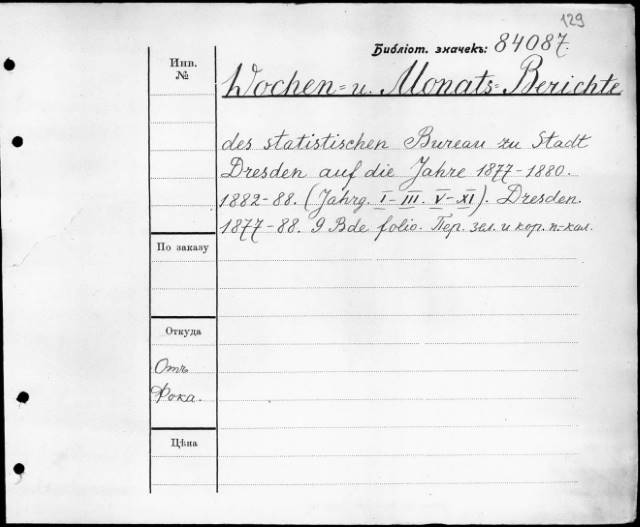 129
Библіот. значекъ: 84087.
Инв.
№
Wochen= u. Monats=Berichte
des statistischen Bureau zu Stadt
Dresden auf die Jahre 1877-1880.
1882-88. (Jahrg. I-III. V-XI). Dresden.
1877-88. 9 Bde folio. Пер. зел. и кор. п-кал.
По заказу
Откуда
Отъ
Фока.
Цѣна